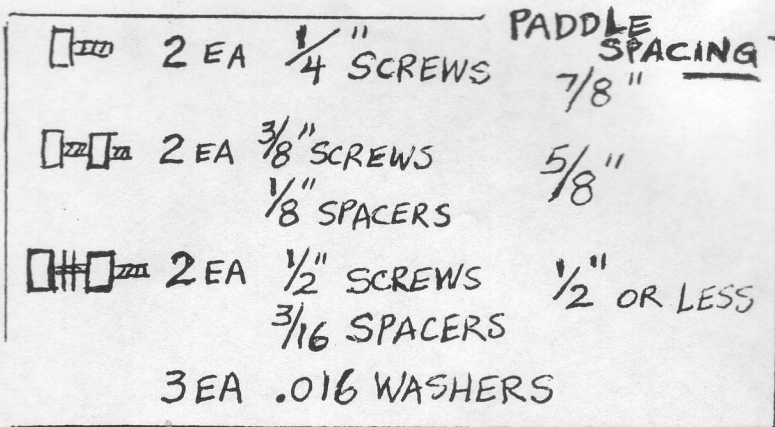 PADDLE SPACING
2 EA 1/4" SCREWS 7/8"
2 EA 3/8" SCREWS 5/8"
1/8" SPACERS
2 EA 1/2" SCREWS 1/2" OR LESS
3/16 SPACERS
3 EA .016 WASHERS